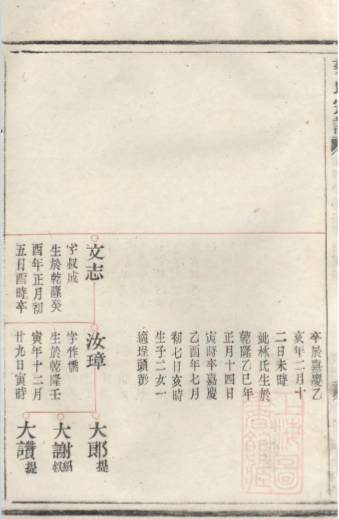 卒於嘉慶乙
亥年二月十
二日未時
妣林氏生於
乾隆乙巳年
正月十四日
寅時卒嘉慶
乙酉年七月
初七日亥時
生子二女一
適埕頭彭
文志
字叔成
生於乾隆癸
酉年正月初
五日酉時卒
汝璋
字作
生於乾隆壬
寅年十二月
廿九日寅時
大郎提
大謝紹叔
大讚提